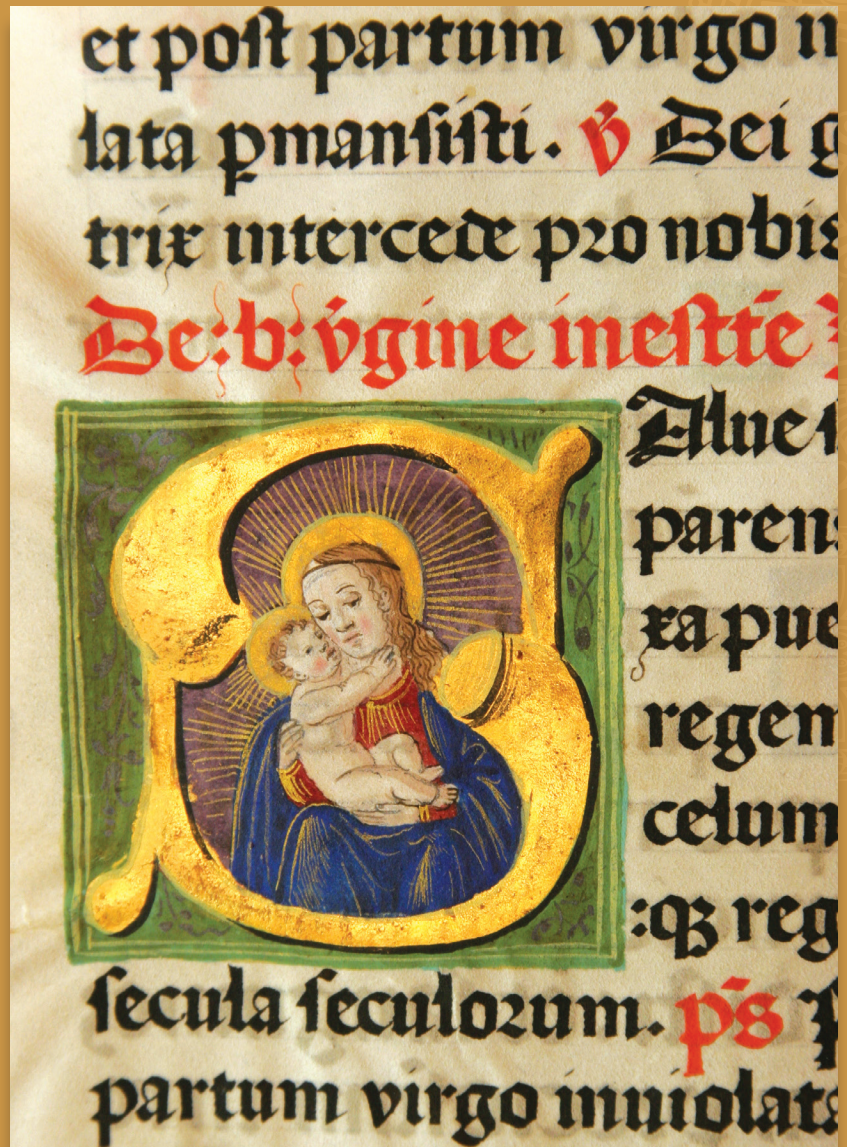 et post partum virgo
lata pmansisti. v̄ Dei g
trix intercede pro nobis
De: b: v̄gine in estt̄e
Salue
parens
xa pue
regem
celum
:qꝫ reg
secula seculorum. p̄s
partum virgo inuiolata